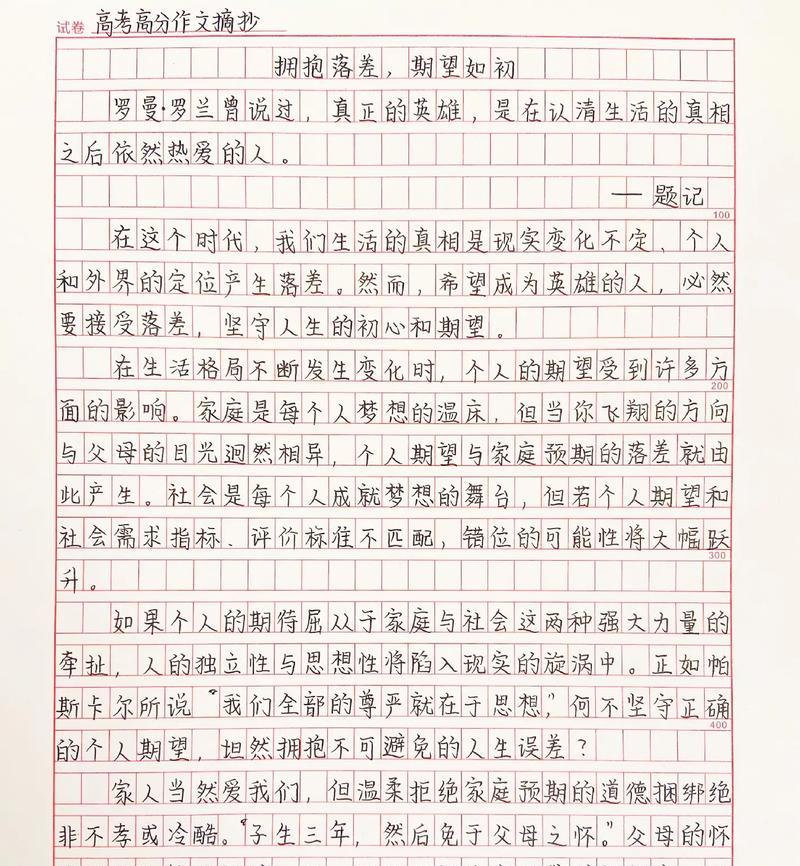 试卷 高考高分作文摘抄
拥抱落差，期望如初
罗曼·罗兰曾说过，真正的英雄，是在认清生活的真相
之后依然热爱的人。
——题记
100
在这个时代，我们生活的真相是现实变化不定、个人
和外界的定位产生落差。然而，希望成为英雄的人，必然
要接受落差，坚守人生的初心和期望。
在生活格局不断发生变化时，个人的期望受到许多方
200
面的影响。家庭是每个人梦想的温床，但当你飞翔的方向
与父母的目光迥然相异，个人期望与家庭预期的落差就由
此产生。社会是每个人成就梦想的舞台，但若个人期望和
社会需求指标、评价标准不匹配，错位的可能性将大幅跃
300
升。
如果个人的期待屈从于家庭与社会这两种强大力量的
牵扯，人的独立性与思想性将陷入现实的旋涡中。正如帕
斯卡尔所说“我们全部的尊严就在于思想，”何不坚守正确
400
的个人期望，坦然拥抱不可避免的人生误差？
家人当然爱我们，但温柔拒绝家庭预期的道德捆绑绝
非不孝或冷酷。“子生三年，然后免于父母之怀。”父母的怀